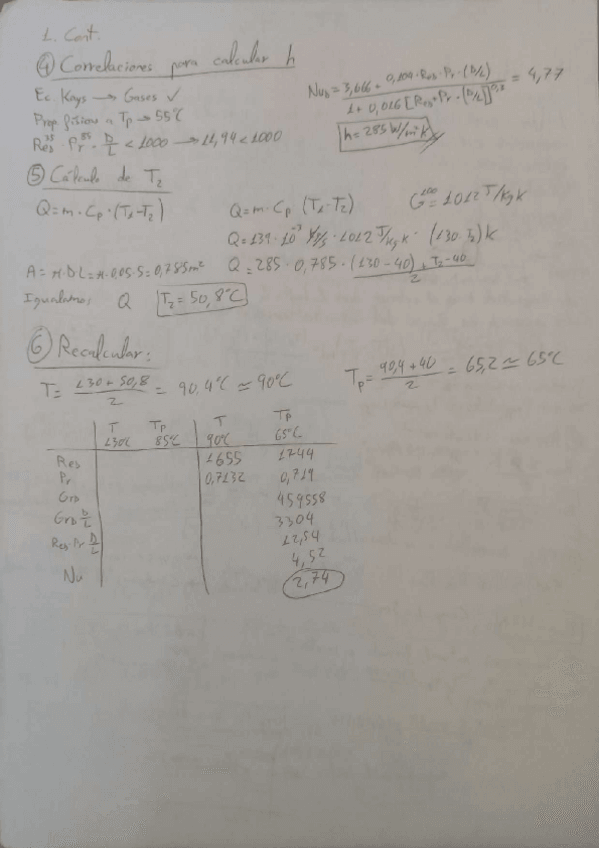 1. Cont.
④ Correlaciones para calcular h
Ec. Kays → Gases ✓
Prop físicas a Tp → 55°C
Re_D^.35 · Pr^.85 · D/L < 1000 → 11,94 < 1000
Nu_D = (3,666 + 0,104 · Re_D · Pr · (D/L)) / (1 + 0,016 [Re_D · Pr · (D/L)]^0,8) = 4,77
h = 285 W/m²K
⑤ Cálculo de T2
Q = m · Cp · (T1 - T2)
Q = m · Cp (T1 - T2)
Cp = 1012 J/Kg K
Q = 139 · 10^-3 Kg/s · 1012 J/Kg K · (130 · T2) K
A = π · D L = π · 0,05 · 5 = 0,785 m²
Q = 285 · 0,785 · ((130 - 40) + T2 - 40) / 2
Igualamos, Q T2 = 50,8°C
⑥ Recalcular:
T = (130 + 50,8) / 2 = 90.4°C ≃ 90°C
Tp = (90,4 + 40) / 2 = 65,2 ≃ 65°C
T Tp T Tp
130°C 85°C 90°C 65°C
Re_D 1655 1744
Pr 0,7132 0,719
Gr_D 459558
Gr_D D/L 3304
Re_D Pr D/L 12,54
4,52
Nu 2,74